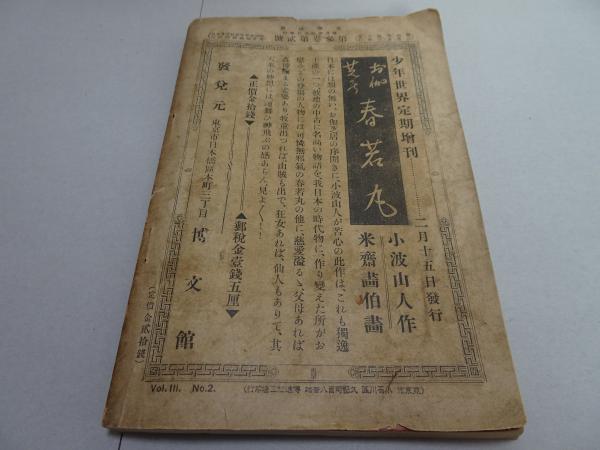 第參卷第貳號
少年世界定期增刊
二月十五日發行
お伽芝居
春若丸
小波山人作
米齋畫伯畫
日本には類の無い、お伽芝居の序開きに、小波山人が苦心の此作は、これも獨逸
土產の一つ、彼地の中古に名高い物語を、我日本の時代物に、作り變えた所がお
慰み、其登場の人物には、可憐無邪氣の春若丸の他に、慈愛溢るゝ父母あれば
牧童出づれば、山賊も出で、狂女あれば、仙人もありて、其
▲正價金拾錢▼
▲郵稅金壹錢五厘▼
發兌元
東京市日本橋區本町三丁目
博文館
(定價金貳拾錢)
Vol. III. No. 2.